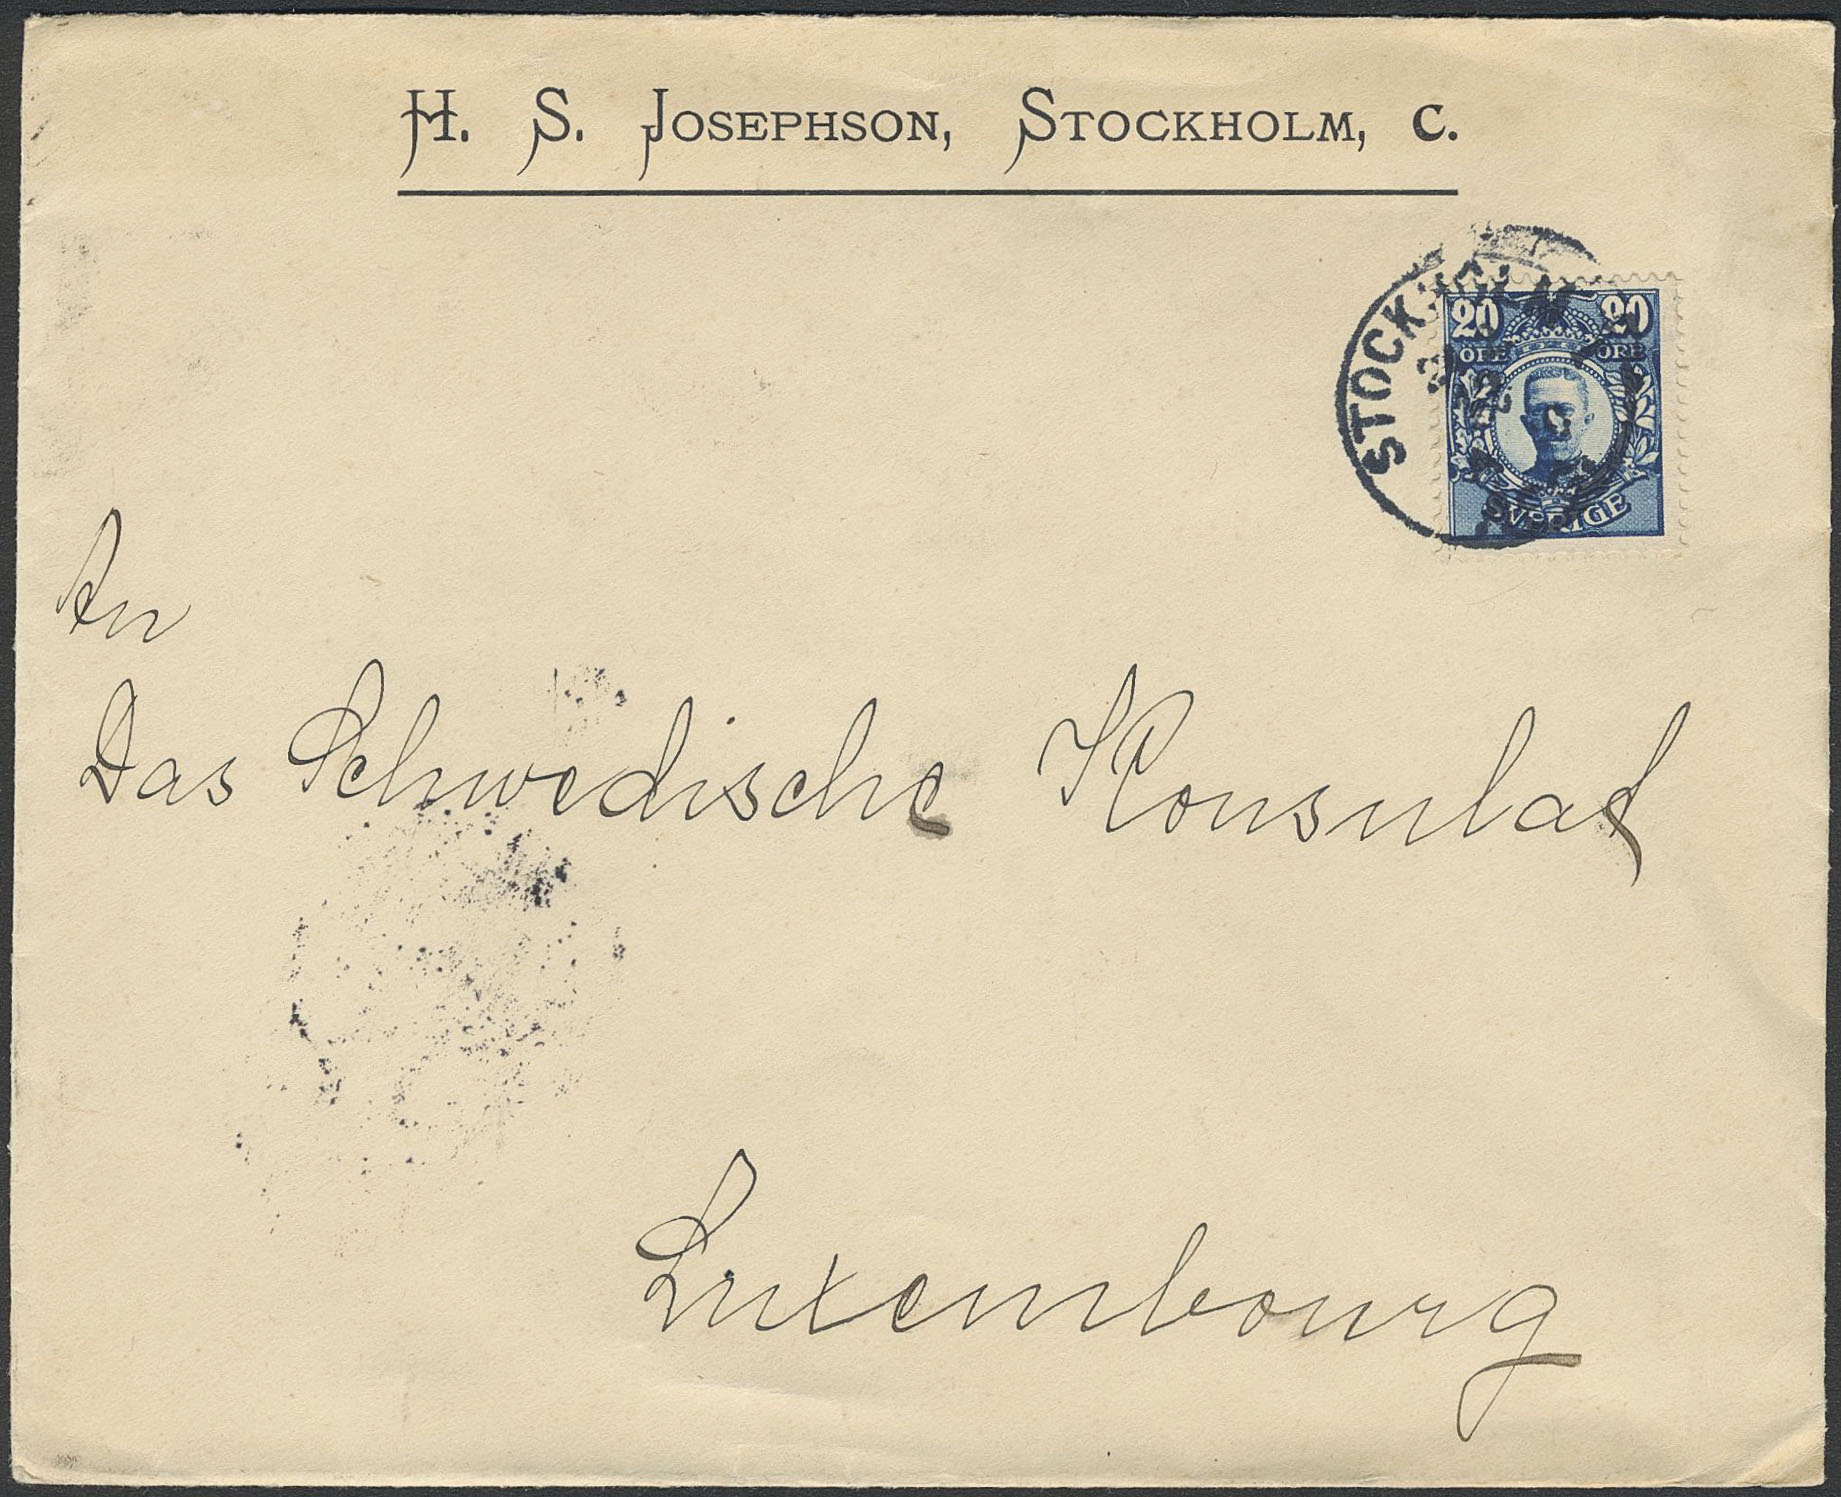 H. S. Josephson, Stockholm, C.
STOCKHOLM
20 20
ÖRE ÖRE
SVERIGE
An
Das Schwedische Konsulat
Luxembourg